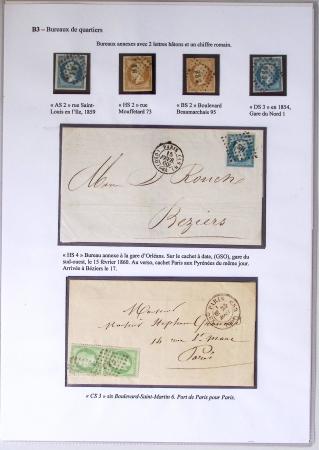 B3 – Bureaux de quartiers
Bureaux annexes avec 2 lettres bâtons et un chiffre romain.
« AS 2 » rue Saint-
Louis en l'Ile, 1859
« HS 2 » rue
Mouffetard 73
« BS 2 » Boulevard
Beaumarchais 95
« DS 3 » en 1854,
Gare du Nord 1
PARIS
15
FEVR
60
Béziers
« HS 4 » Bureau annexe à la gare d'Orléans. Sur le cachet à date, (GSO), gare du
sud-ouest, le 15 février 1860. Au verso, cachet Paris aux Pyrénées du même jour.
Arrivée à Béziers le 17.
PARIS
Monsieur
Monsieur Stephen
14 rue St
Paris
« CS 3 » sis Boulevard-Saint-Martin 6. Port de Paris pour Paris.